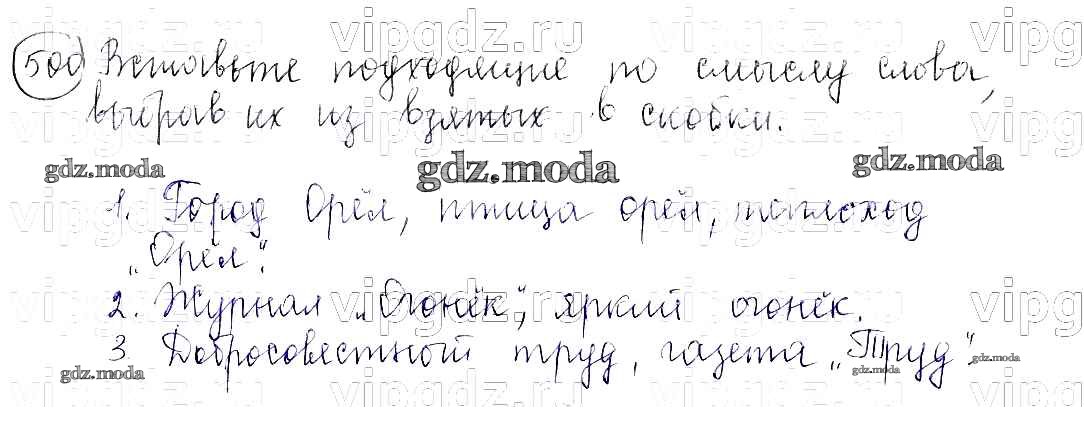 500 Вставьте подходящие по смыслу слова,
выбрав их из взятых в скобки.
gdz.moda gdz.moda gdz.moda
1. Город Орёл, птица орёл, теплоход
„Орёл".
2. Журнал „Огонёк", яркий огонёк.
3. Добросовестный труд, газета „Труд".
gdz.moda gdz.moda gdz.moda
vipgdz.ru